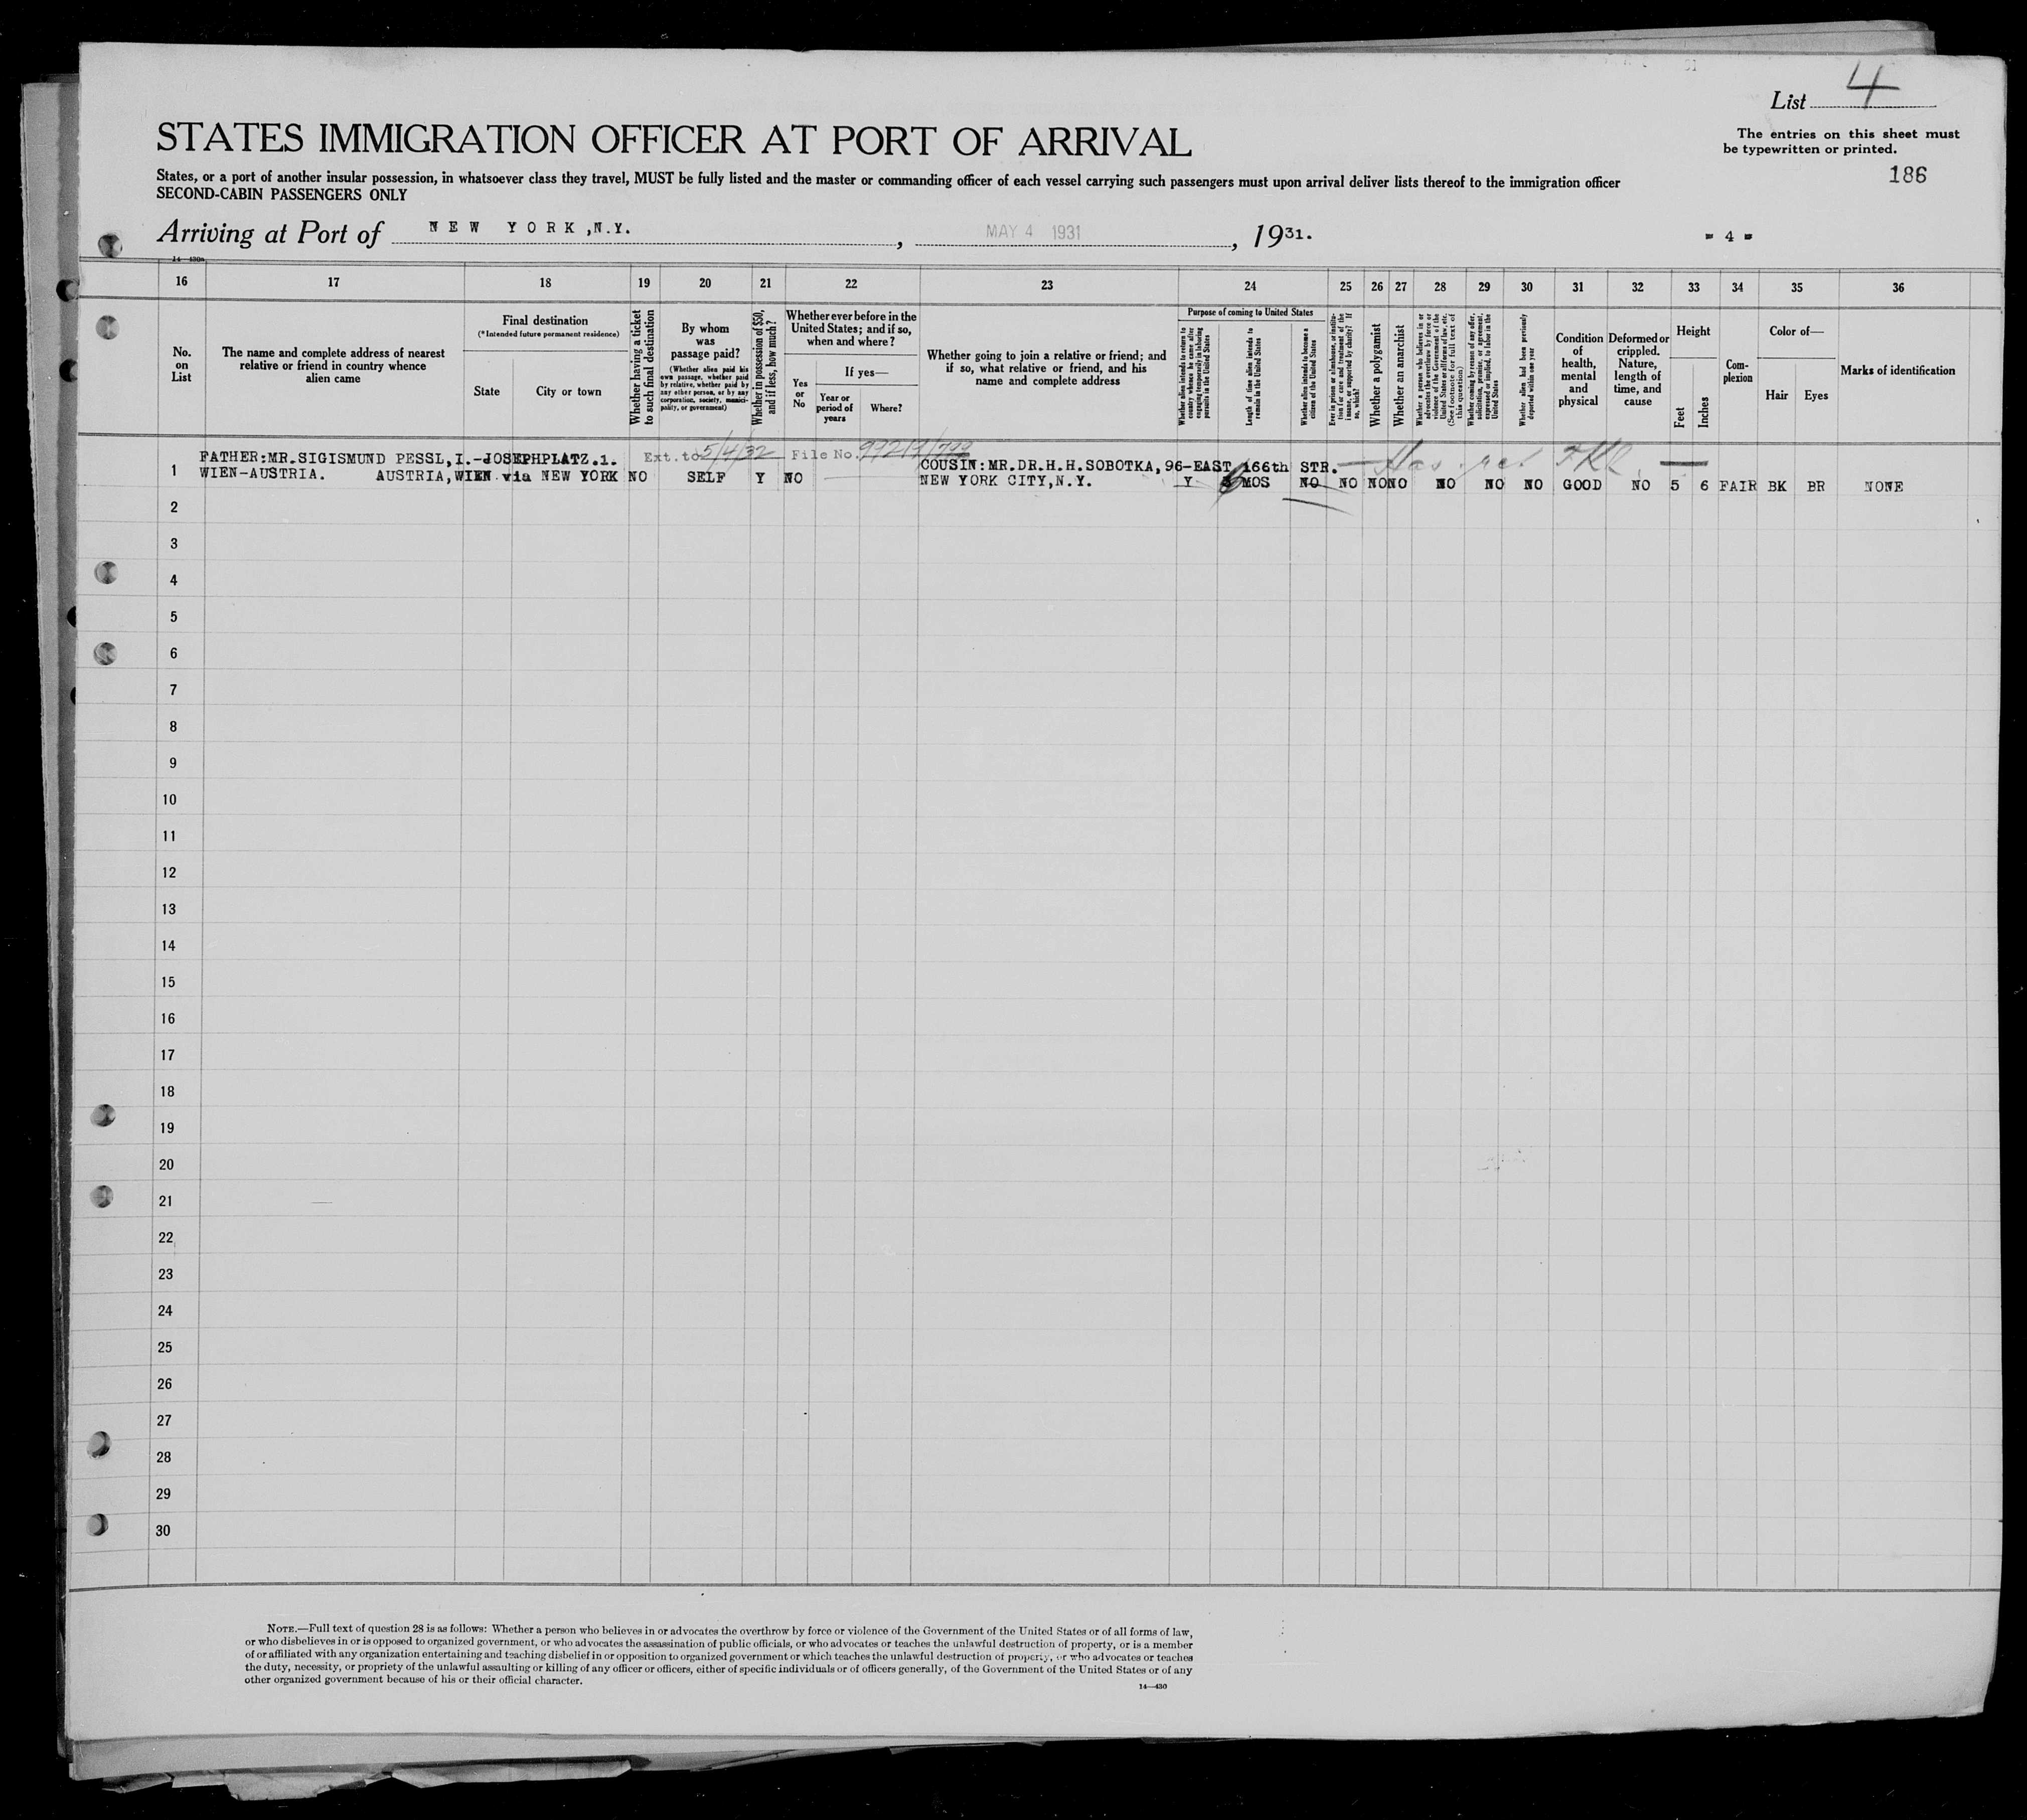 List 4
The entries on this sheet must
be typewritten or printed.
186
STATES IMMIGRATION OFFICER AT PORT OF ARRIVAL
States, or a port of another insular possession, in whatsoever class they travel, MUST be fully listed and the master or commanding officer of each vessel carrying such passengers must upon arrival deliver lists thereof to the immigration officer
SECOND-CABIN PASSENGERS ONLY
Arriving at Port of NEW YORK, N.Y. , MAY 4 1931 , 1931.
- 4 -
16 17 18 19 20 21 22 23 24 25 26 27 28 29 30 31 32 33 34 35 36
No.
on
List
The name and complete address of nearest
relative or friend in country whence
alien came
Final destination
(*Intended future permanent residence)
State
City or town
Whether having a ticket
to such final destination
By whom
was
passage paid?
(Whether alien paid his
own passage, whether paid
by relative, whether paid by
any other person, or by any
corporation, society, munici-
pality, or government)
Whether in possession of $50,
and if less, how much?
Whether ever before in the
United States; and if so,
when and where?
Yes
or
No
If yes—
Year or
period of
years
Where?
Whether going to join a relative or friend; and
if so, what relative or friend, and his
name and complete address
Purpose of coming to United States
Whether alien intends to return to
country whence he came after
engaging temporarily in laboring
pursuits in the United States
Length of time alien intends to
remain in the United States
Whether alien intends to become a
citizen of the United States
Ever in prison or almshouse, or institu-
tion for care and treatment of the
insane, or supported by charity? If
so, which?
Whether a polygamist
Whether an anarchist
Whether a person who believes in or
advocates the overthrow by force or
violence of the Government of the
United States or all forms of law, etc.
(See footnote for full text of
this question)
Whether coming by reason of any offer,
solicitation, promise, or agreement,
expressed or implied, to labor in the
United States
Whether alien had been previously
deported within one year
Condition
of
health,
mental
and
physical
Deformed or
crippled.
Nature,
length of
time, and
cause
Height
Feet
Inches
Com-
plexion
Color of—
Hair
Eyes
Marks of identification
FATHER:MR.SIGISMUND PESSL,I.-JOSEPHPLATZ.1. Ext. to 5/4/32 File No.
COUSIN:MR.DR.H.H.SOBOTKA,96-EAST 166th STR.
1 WIEN-AUSTRIA. AUSTRIA,WIEN via NEW YORK NO SELF Y NO NEW YORK CITY,N.Y. Y 6 MOS NO NO NO NO NO NO NO GOOD NO 5 6 FAIR BK BR NONE
2
3
4
5
6
7
8
9
10
11
12
13
14
15
16
17
18
19
20
21
22
23
24
25
26
27
28
29
30
NOTE.—Full text of question 28 is as follows: Whether a person who believes in or advocates the overthrow by force or violence of the Government of the United States or of all forms of law,
or who disbelieves in or is opposed to organized government, or who advocates the assassination of public officials, or who advocates or teaches the unlawful destruction of property, or is a member
of or affiliated with any organization entertaining and teaching disbelief in or opposition to organized government or which teaches the unlawful destruction of property, or who advocates or teaches
the duty, necessity, or propriety of the unlawful assaulting or killing of any officer or officers, either of specific individuals or of officers generally, of the Government of the United States or of any
other organized government because of his or their official character.
14—430